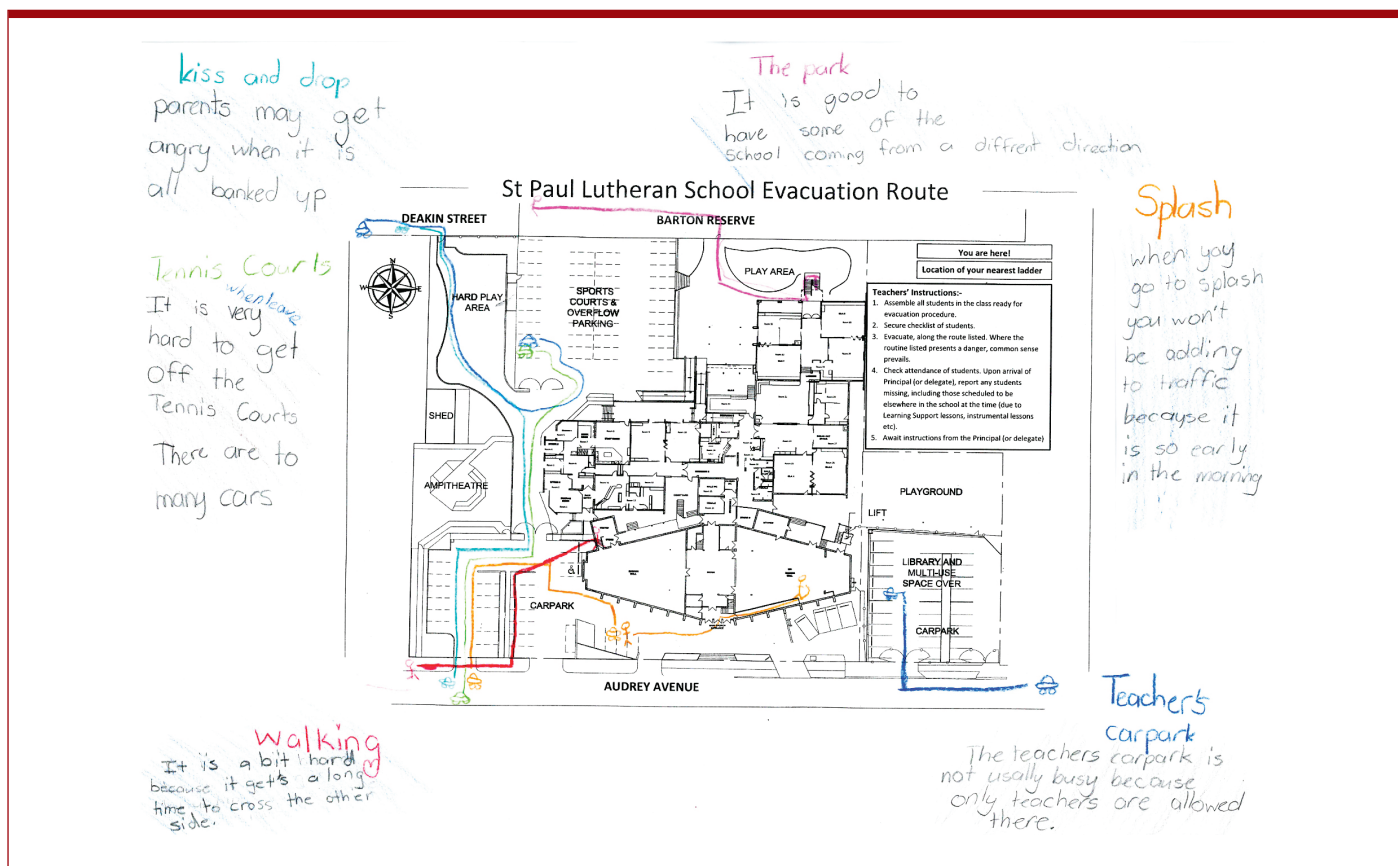 kiss and drop
parents may get
angry when it is
all banked up
The park
It is good to
have some of the
school coming from a diffrent direction
St Paul Lutheran School Evacuation Route
DEAKIN STREET
BARTON RESERVE
Tennis Courts
when leave
It is very
hard to get
off the
Tennis Courts
There are to
many cars
Splash
when yoy
go to splash
you won't
be adding
to traffic
because it
is so early
in the morning
N
W
E
S
HARD PLAY
AREA
SPORTS
COURTS &
OVERFLOW
PARKING
PLAY AREA
You are here!
Location of your nearest ladder
Teachers' Instructions:-
1. Assemble all students in the class ready for
evacuation procedure.
2. Secure checklist of students.
3. Evacuate, along the route listed. Where the
routine listed presents a danger, common sense
prevails.
4. Check attendance of students. Upon arrival of
Principal (or delegate), report any students
missing, including those scheduled to be
elsewhere in the school at the time (due to
Learning Support lessons, instrumental lessons
etc).
5. Await instructions from the Principal (or delegate)
SHED
AMPITHEATRE
PLAYGROUND
LIFT
LIBRARY AND
MULTI-USE
SPACE OVER
CARPARK
CARPARK
AUDREY AVENUE
Walking
It is a bit hard
because it get's a long
time to cross the other
side.
Teachers
carpark
The teachers carpark is
not usally busy because
only teachers are allowed
there.